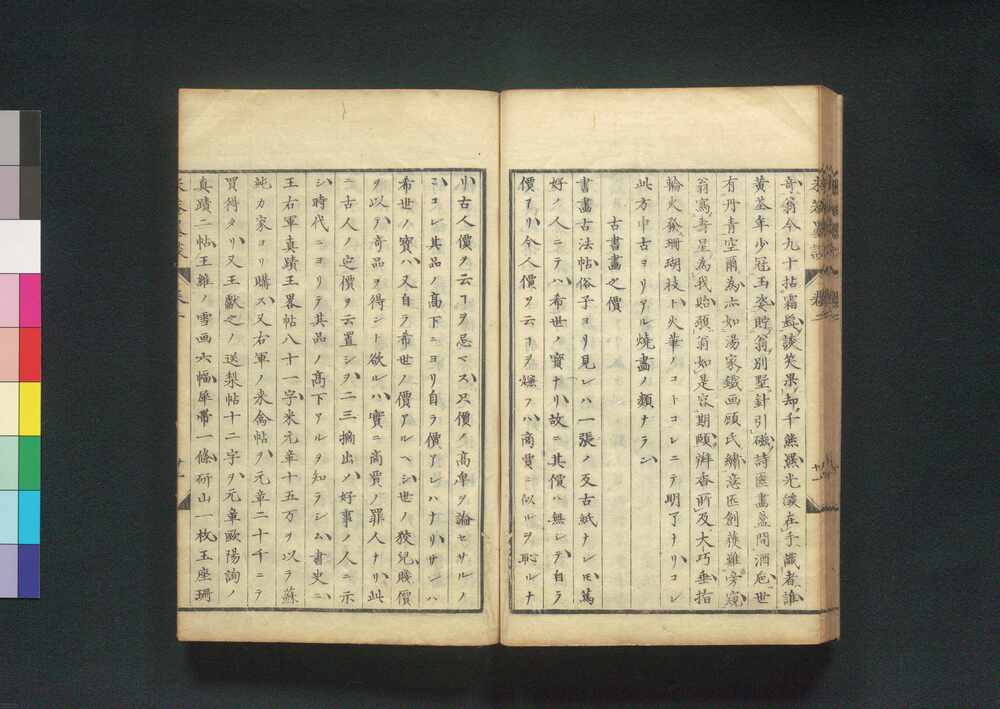 奇翁今九十拈霜髭談笑果却千熊羆光談在手識者誰
黄荃年少冠玉姿貯翁別墅針引磁詩匧畫盝間酒卮世
有丹青空爾為亦如湯家鐵画顧氏繡意匠創獲難旁窺
翁寫壽星為我貽頭翁如是容期頤辨香所及大巧垂指
輪火發珊瑚枝ト火華ノコトコレニテ明了ナリコレ
此方中古ヨリアル燒畫ノ類ナラン
古書畫之價
書畫古法帖俗子ヨリ見レハ一張ノ反古紙ナレモ篤
好ノ人ニテハ希世ノ寶ナリ故ニ其價ハ無レヲ自ラ
價アリ今人價ヲ云コヲ嫌フハ商賈ニ似ルヲ恥ルナ
リ古人價ヲ云コヲ忌マス只價ノ高卑ヲ論セサルノ
ミコレ其品ノ高下ニヨリ自ラ價アレハナリサレハ
希世ノ寶ハ又自ラ希世ノ價アルヘシ世ノ狡兒賤價
ヲ以テ奇品ヲ得ント欲ルハ實ニ商賈ノ罪人ナリ此
ニ古人ノ定價ヲ云置シヲ二三摘出ノ好事ノ人ニ示
シ時代ニヨリテ其品ノ高下アルヲ知ラシム書史ニ
王右軍真蹟王畧帖八十一字米元章十五万ヲ以テ蘇
純カ家ヨリ購ス又右軍ノ来禽帖ヲ元章二十千ニテ
買得タリ又王獻之ノ送梨帖十二字ヲ元章歐陽詢ノ
真蹟二帖王維ノ雪画六幅犀帶一條硏山一枚玉座珊